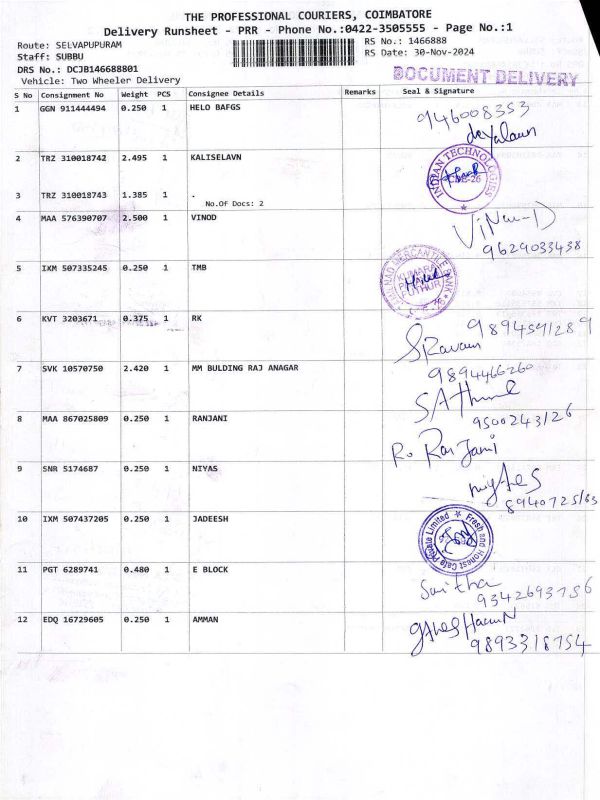 THE PROFESSIONAL COURIERS, COIMBATORE
Delivery Runsheet - PRR - Phone No.:0422-3505555 - Page No.:1
Route: SELVAPUPURAM
RS No.: 1466888
Staff: SUBBU
RS Date: 30-Nov-2024
DRS No.: DCJB146688801
Vehicle: Two Wheeler Delivery
DOCUMENT DELIVERY
S No Consignment No Weight PCS Consignee Details Remarks Seal & Signature
1 GGN 911444494 0.250 1 HELO BAFGS
946008353
2 TRZ 310018742 2.495 1 KALISELAVN
INDIAN TECHNOLOGIES
3 TRZ 310018743 1.385 1 .
No.Of Docs: 2
4 MAA 576390707 2.500 1 VINOD
9629033438
5 IKM 507335245 0.250 1 TMB
MERCANTILE BANK
6 KVT 3203671 0.375 1 RK
9894591289
7 SVK 10570750 2.420 1 MM BULDING RAJ ANAGAR
9894466260
8 MAA 867025809 0.250 1 RANJANI
9500243126
Ranjani
9 SNR 5174687 0.250 1 NIYAS
10 IXM 507437205 0.250 1 JADEESH
Fresh and Honest Cafe Private Limited
11 PGT 6289741 0.480 1 E BLOCK
9342693756
12 EDQ 16729605 0.250 1 AMMAN
9893318754